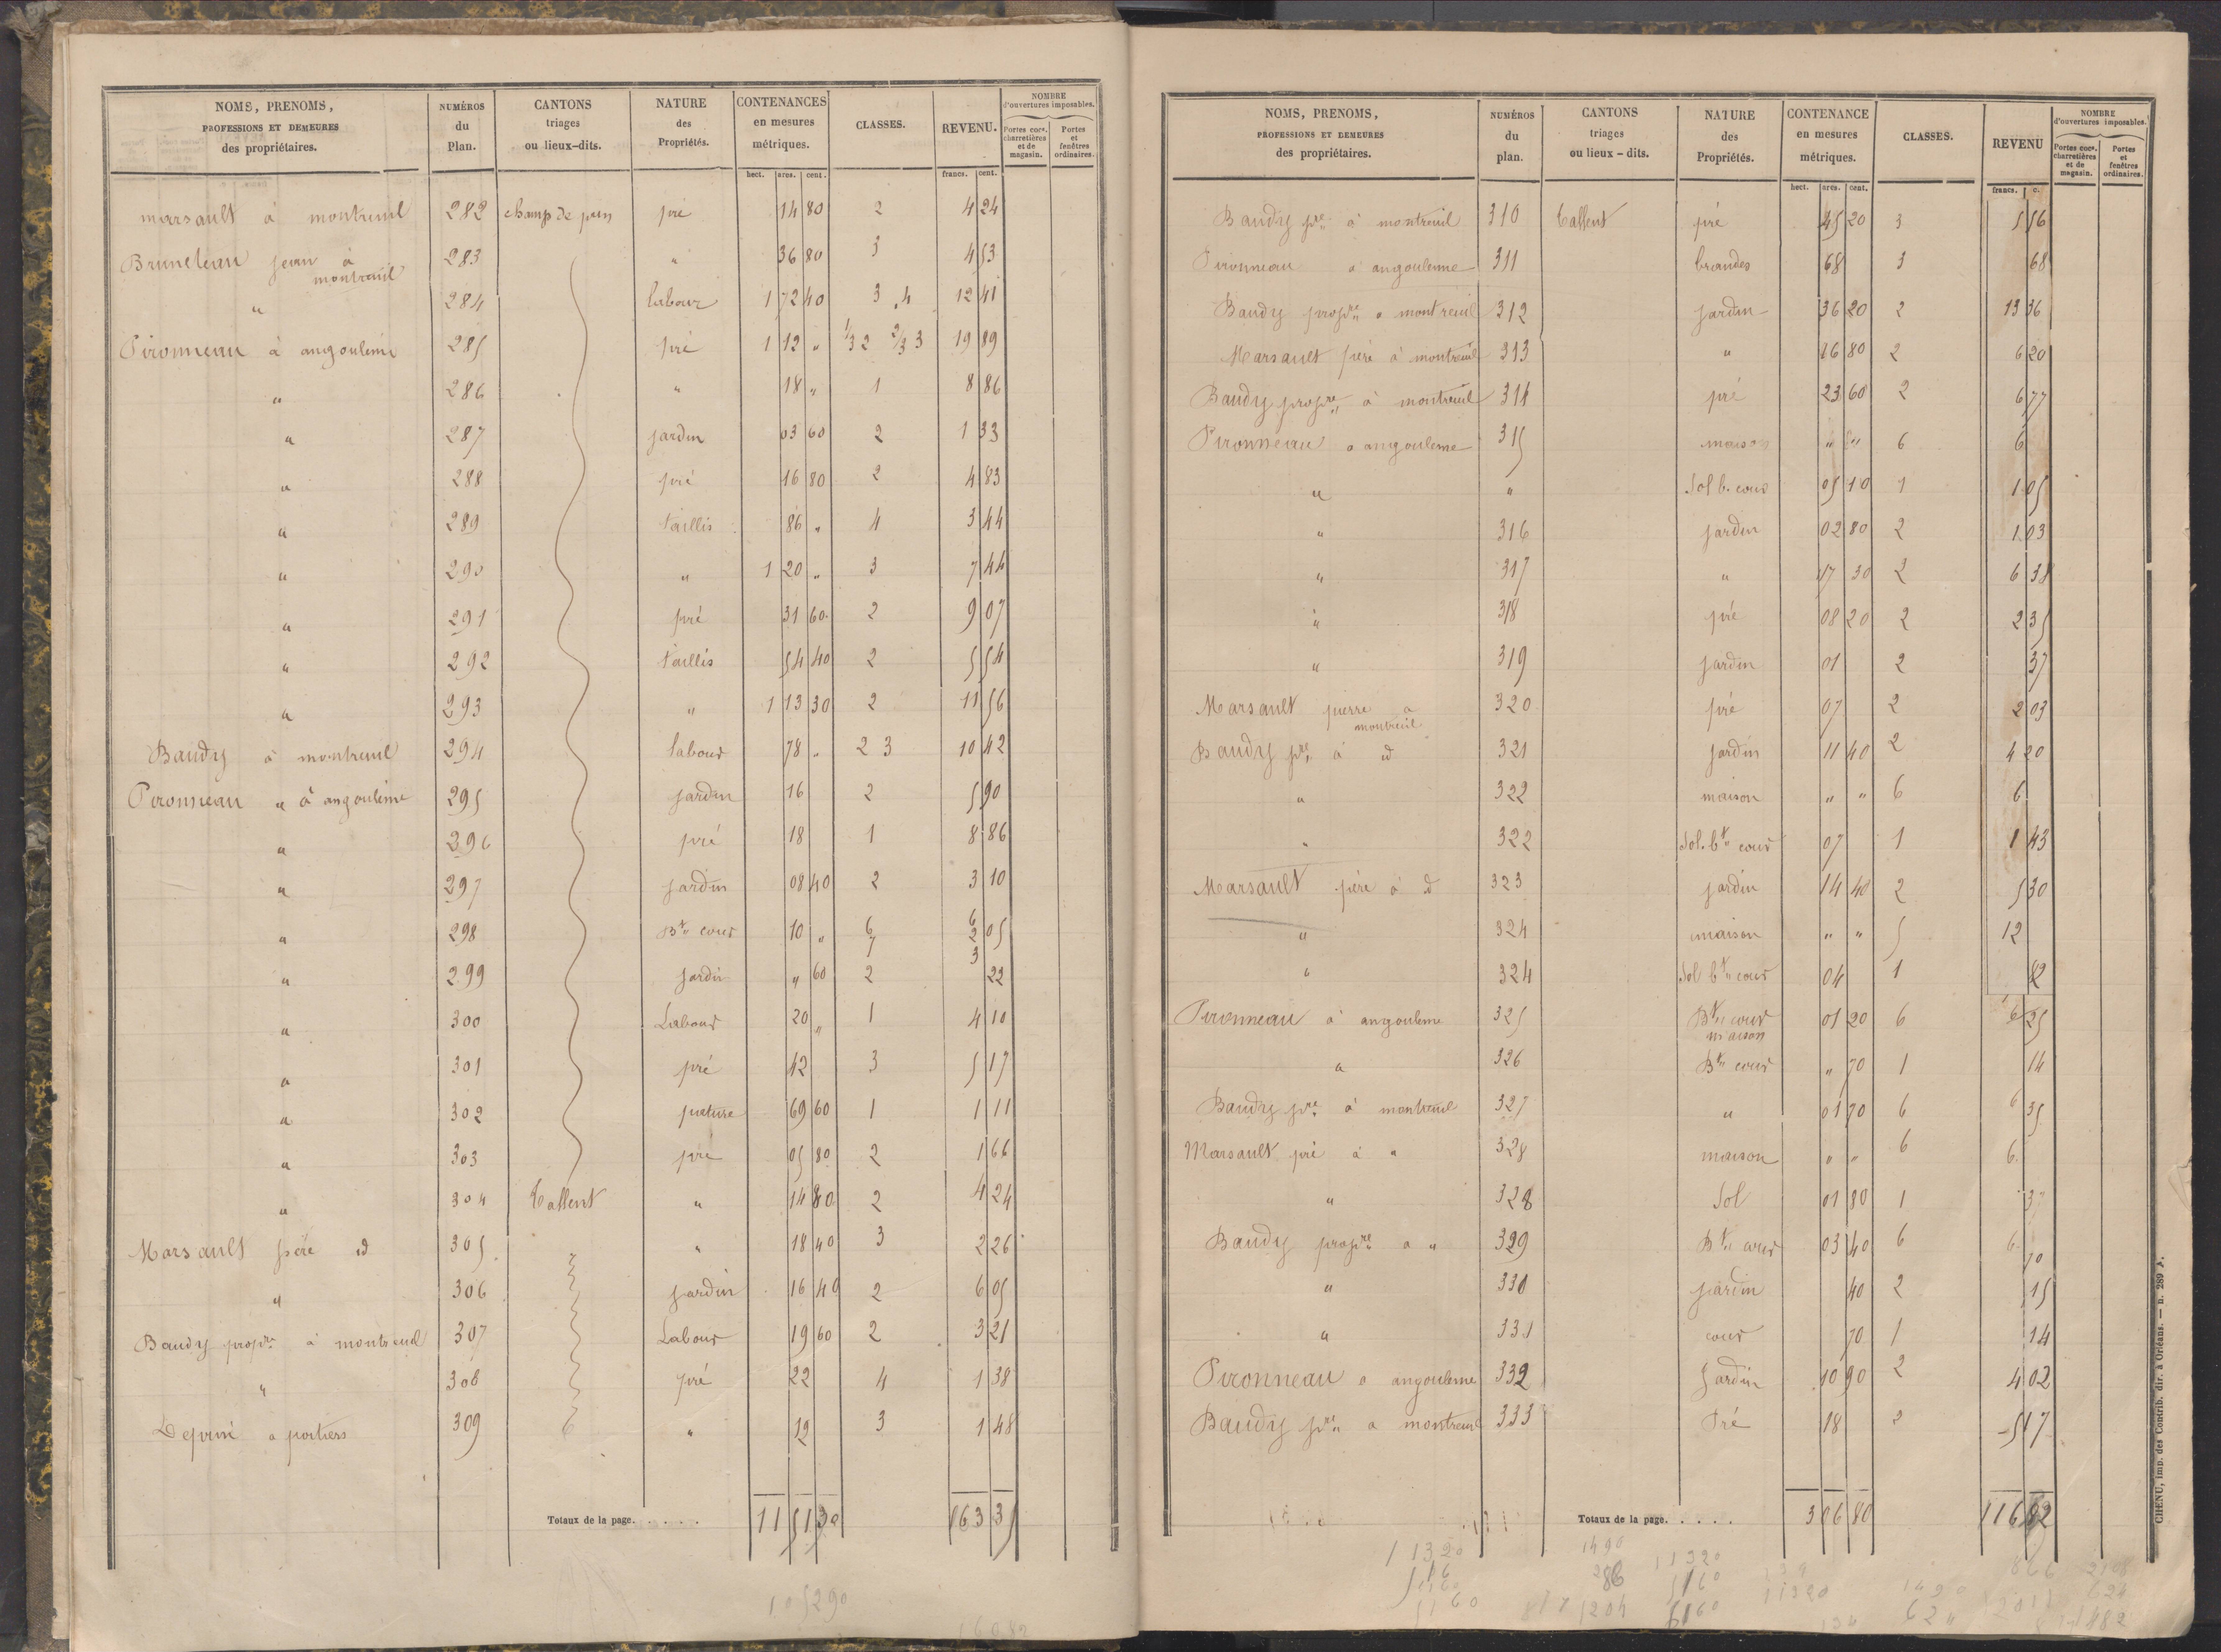 NOMS, PRENOMS, PROFESSIONS ET DEMEURES des propriétaires. NUMÉROS du Plan. CANTONS triages ou lieux-dits. NATURE des Propriétés. CONTENANCES en mesures métriques. CLASSES. REVENU. NOMBRE d'ouvertures imposables. Portes coc^es. charretières et de magasin. Portes et fenêtres ordinaires.
hect. ares. cent. francs. cent.
marsault à montreuil 282 champ de pun pré 14 80 2 4 24
Bruneteau jean à montreuil 283 " 36 80 3 4 53
" 284 labour 1 72 40 3,4 12 41
Pironneau à angoulème 285 pré 1 12 " 1/3 2 2/3 3 19 89
" 286 " 18 " 1 8 86
" 287 jardin 03 60 2 1 33
" 288 pré 16 80 2 4 83
" 289 taillis 86 " 4 3 44
" 290 " 1 20 " 3 7 44
" 291 pré 31 60 2 9 07
" 292 taillis 54 40 2 5 54
" 293 " 1 13 30 2 11 56
Baudy à montreuil 294 labour 78 " 2 3 10 42
Pironneau " à angoulème 295 jardin 16 2 5 90
" 296 pré 18 1 8 86
" 297 jardin 08 40 2 3 10
" 298 B^t " cour 10 " 6 7 6 2 05 3
" 299 jardin " 60 2 22
" 300 Labour 20 " 1 4 10
" 301 pré 42 3 5 17
" 302 pature 69 60 1 1 11
" 303 pré 05 80 2 1 66
" 304 Callent " 14 80 2 4 24
Marsault père id 305 " 18 40 3 2 26
" 306 jardin 16 40 2 6 05
Baudy prop^re à montreuil 307 Labour 19 60 2 3 21
" 308 pré 22 4 1 38
à poitiers 309 " 12 3 1 48
Totaux de la page. 11 51 30 163 35
105290
NOMS, PRENOMS, PROFESSIONS ET DEMEURES des propriétaires. NUMÉROS du plan. CANTONS triages ou lieux-dits. NATURE des Propriétés. CONTENANCE en mesures métriques. CLASSES. REVENU NOMBRE d'ouvertures imposables. Portes coc^es. charretières et de magasin. Portes et fenêtres ordinaires.
hect. ares. cent. francs. c.
Baudy p^re à montreuil 310 Callent pré 45 20 3 5 56
Pironneau à angouleme 311 brandes 68 3 68
Baudy prop^re à montreuil 312 jardin 36 20 2 13 36
Marsault père à montreuil 313 " 16 80 2 6 20
Baudy prop^re à montreuil 314 pré 23 60 2 6 77
Pironneau à angouleme 315 maison " " 6 6
" " Sol b. cour 05 10 1 1 05
" 316 jardin 02 80 2 1 03
" 317 " 17 30 2 6 38
" 318 pré 08 20 2 2 35
" 319 jardin 01 2 37
Marsault pierre à montreuil 320 pré 07 2 2 03
Baudy p^re à id 321 jardin 11 40 2 4 20
" 322 maison " " 6 6
" 322 Sol. b^t " cour 07 1 1 43
Marsault père à id 323 jardin 14 40 2 5 30
" 324 maison " " 5 12
" 324 Sol b^t " cour 04 1 82
Pironneau à angouleme 325 B^t " cour maison 01 20 6 6 25
" 326 B^t " cour " 70 1 14
Baudy p^re à montreuil 327 " 01 70 6 6 35
Marsault pré à " 328 maison " " 6 6
" 328 Sol 01 80 1 37
Baudy prop^re à " 329 B^t " cour 03 40 6 6 70
" 330 jardin 40 2 15
" 331 cour 70 1 14
Pironneau à angouleme 332 jardin 10 90 2 4 02
Baudy p^re à montreuil 333 Pré 18 2 5 17
Totaux de la page. 3 06 80 116 82
11320 1490 11320
286 5160
5160 1204 5160 11320
CHENU, imp. des Contrib. dir. à Orléans. — n. 289 A.